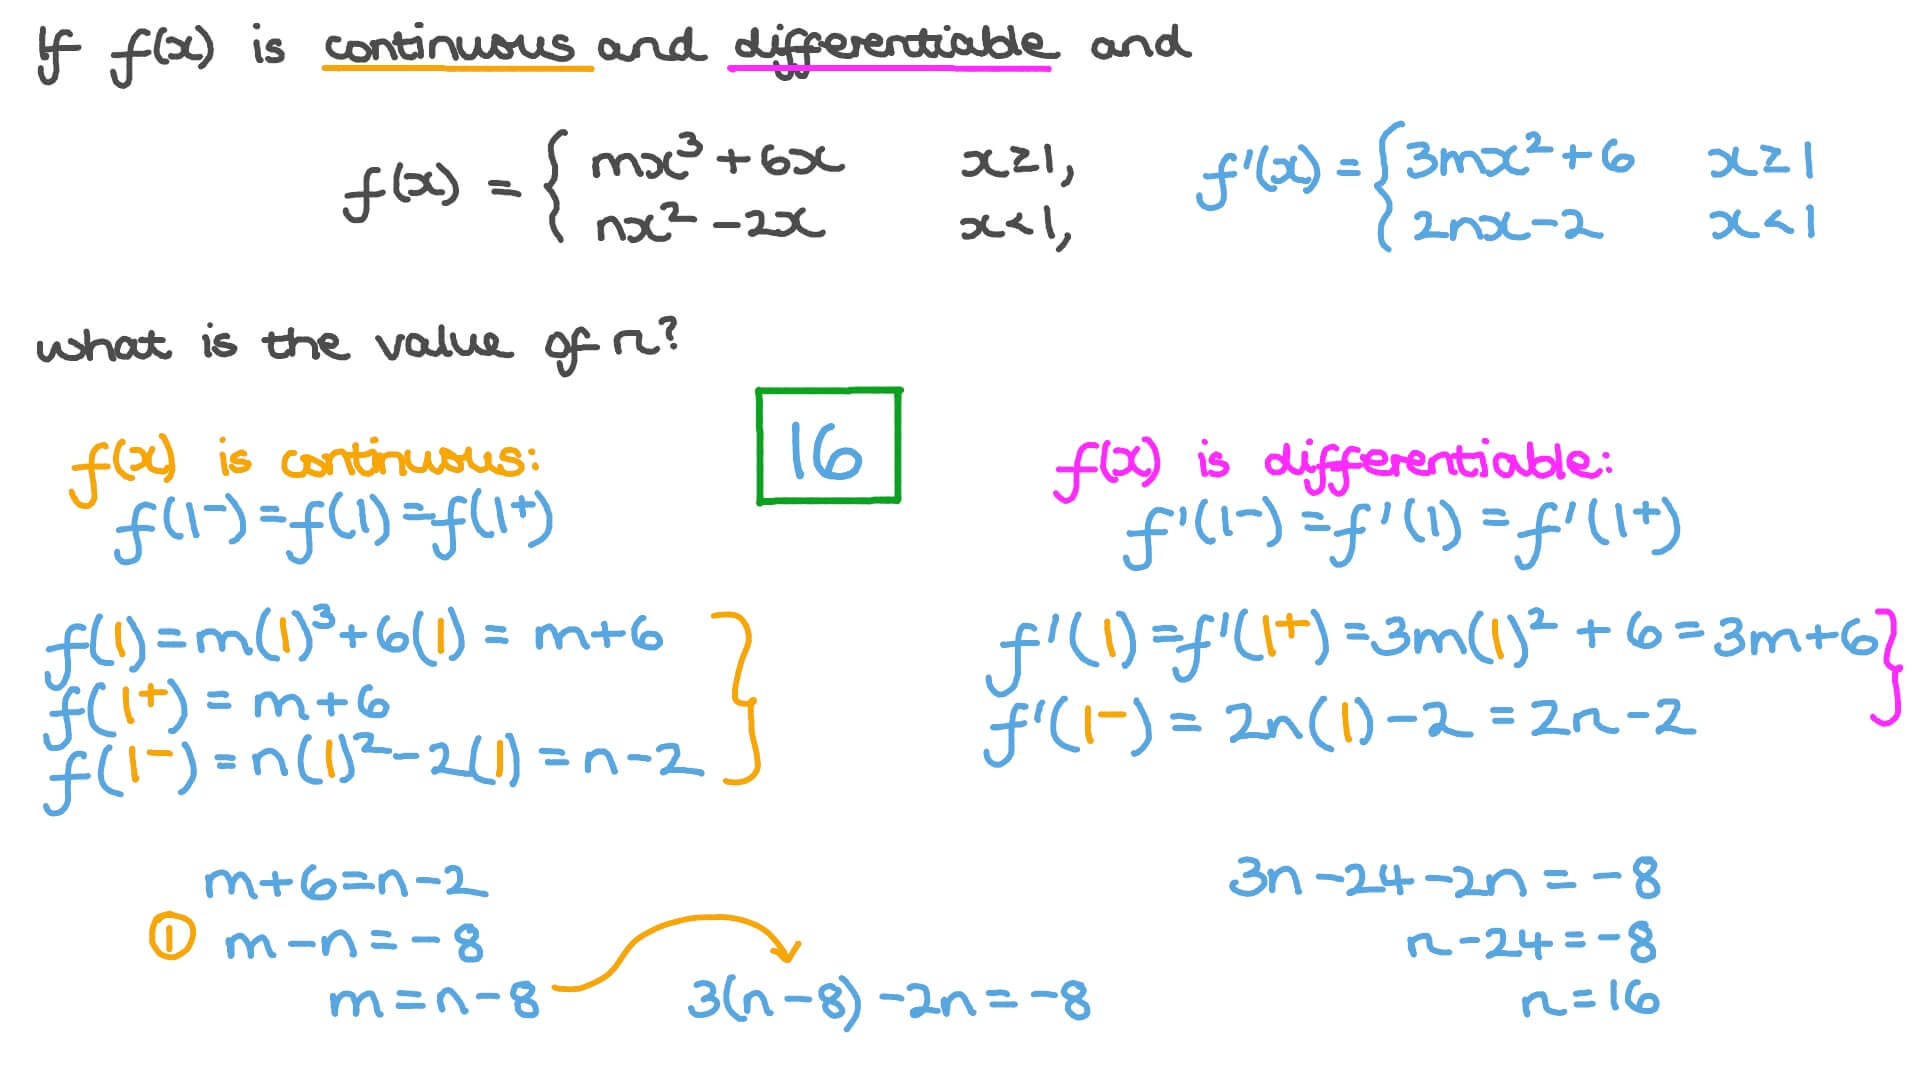 If f(x) is continuous and differentiable and
f(x) = { mx³ + 6x x ≥ 1,
nx² - 2x x < 1,
f'(x) = { 3mx² + 6 x ≥ 1
2nx - 2 x < 1
what is the value of n?
16
f(x) is continuous:
f(1⁻) = f(1) = f(1⁺)
f(1) = m(1)³ + 6(1) = m + 6
f(1⁺) = m + 6
f(1⁻) = n(1)² - 2(1) = n - 2
m + 6 = n - 2
① m - n = -8
m = n - 8
f(x) is differentiable:
f'(1⁻) = f'(1) = f'(1⁺)
f'(1) = f'(1⁺) = 3m(1)² + 6 = 3m + 6
f'(1⁻) = 2n(1) - 2 = 2n - 2
3(n - 8) - 2n = -8
3n - 24 - 2n = -8
n - 24 = -8
n = 16